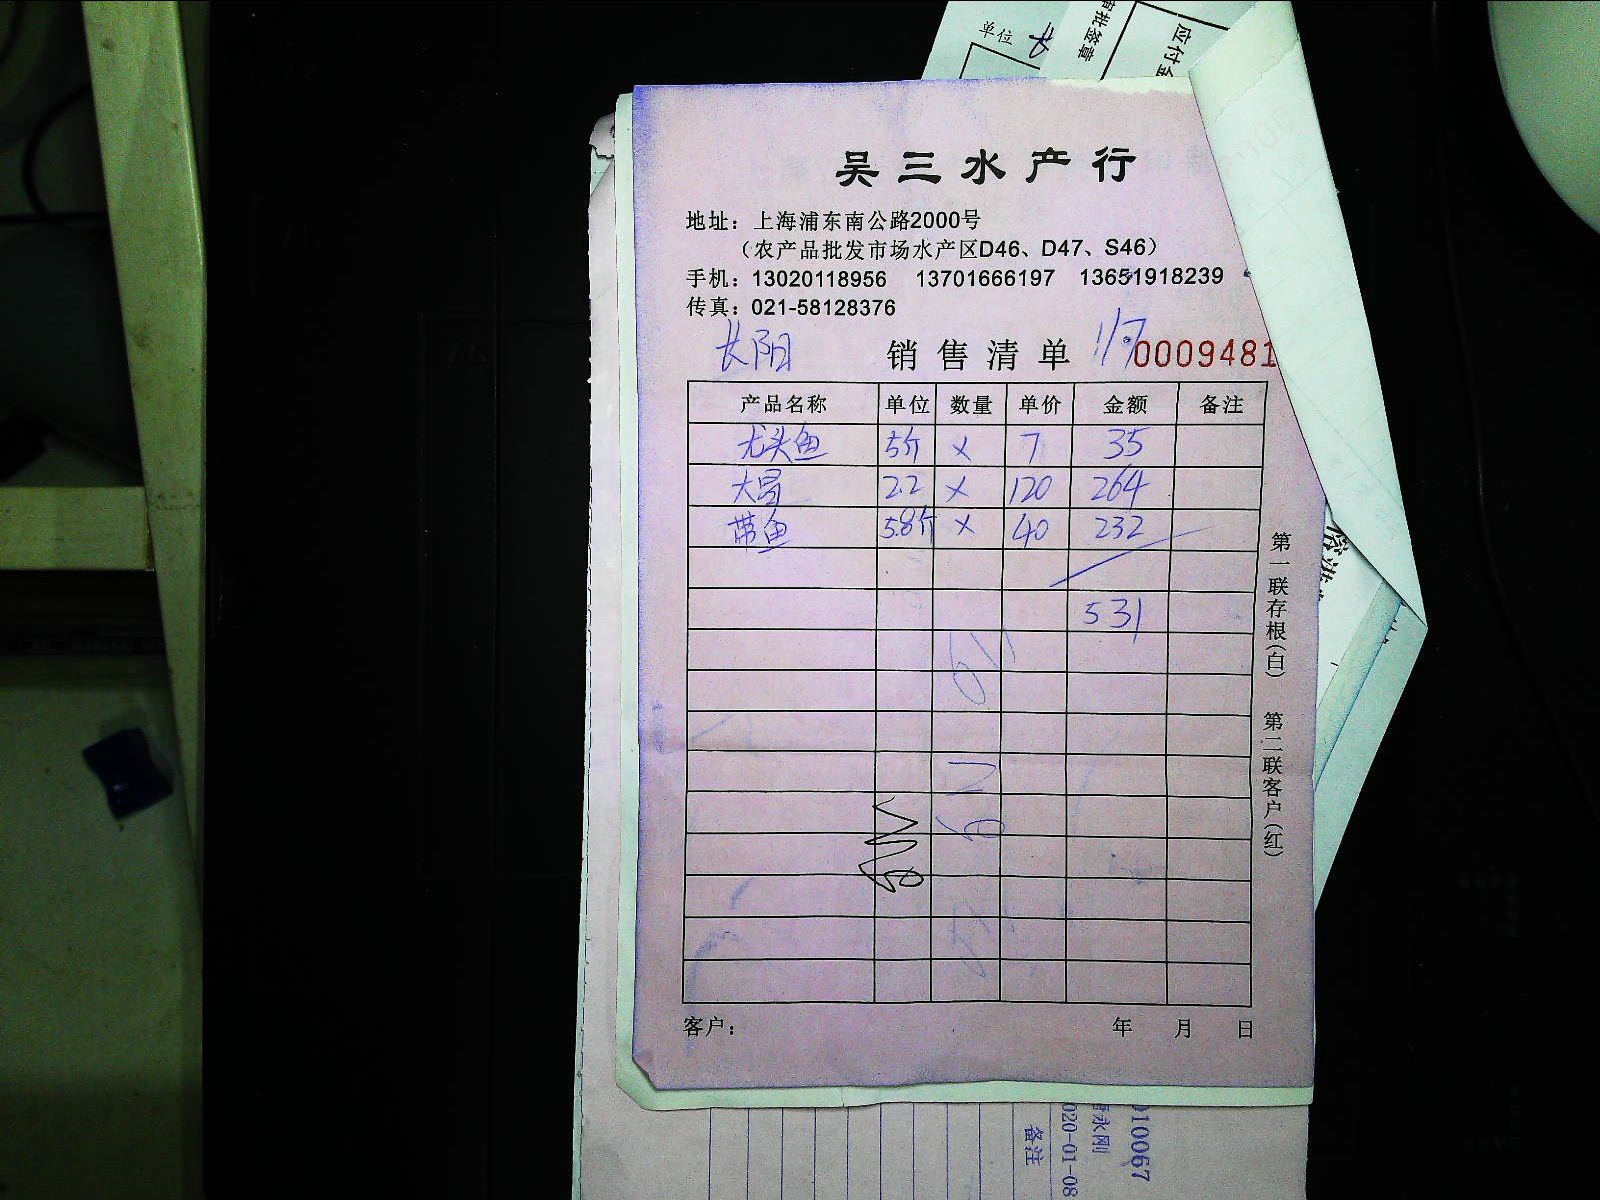 单位
审批签章
应付金
吴三水产行
地址：上海浦东南公路2000号
（农产品批发市场水产区D46、D47、S46）
手机：13020118956 13701666197 13651918239
传真：021-58128376
长阳 销售清单 1/7 0009481
产品名称 单位 数量 单价 金额 备注
龙头鱼 5斤 × 7 35
大 2.2 × 120 264
带鱼 5.8斤 × 40 232
531
第一联存根(白) 第二联客户(红)
客户： 年 月 日
备注
020-01-08
水刚
010067